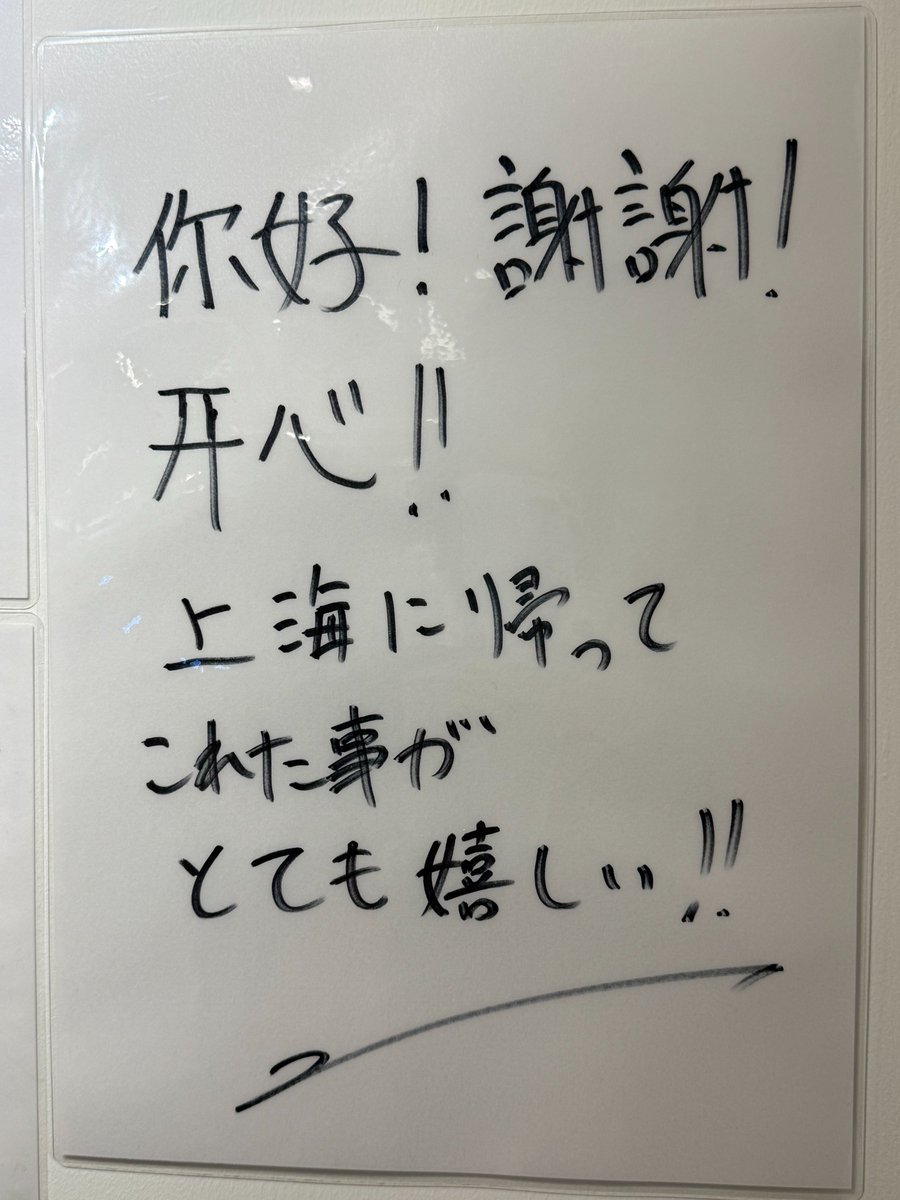 你好! 謝謝!
开心!!
上海に帰って
これた事が
とても嬉しい!!